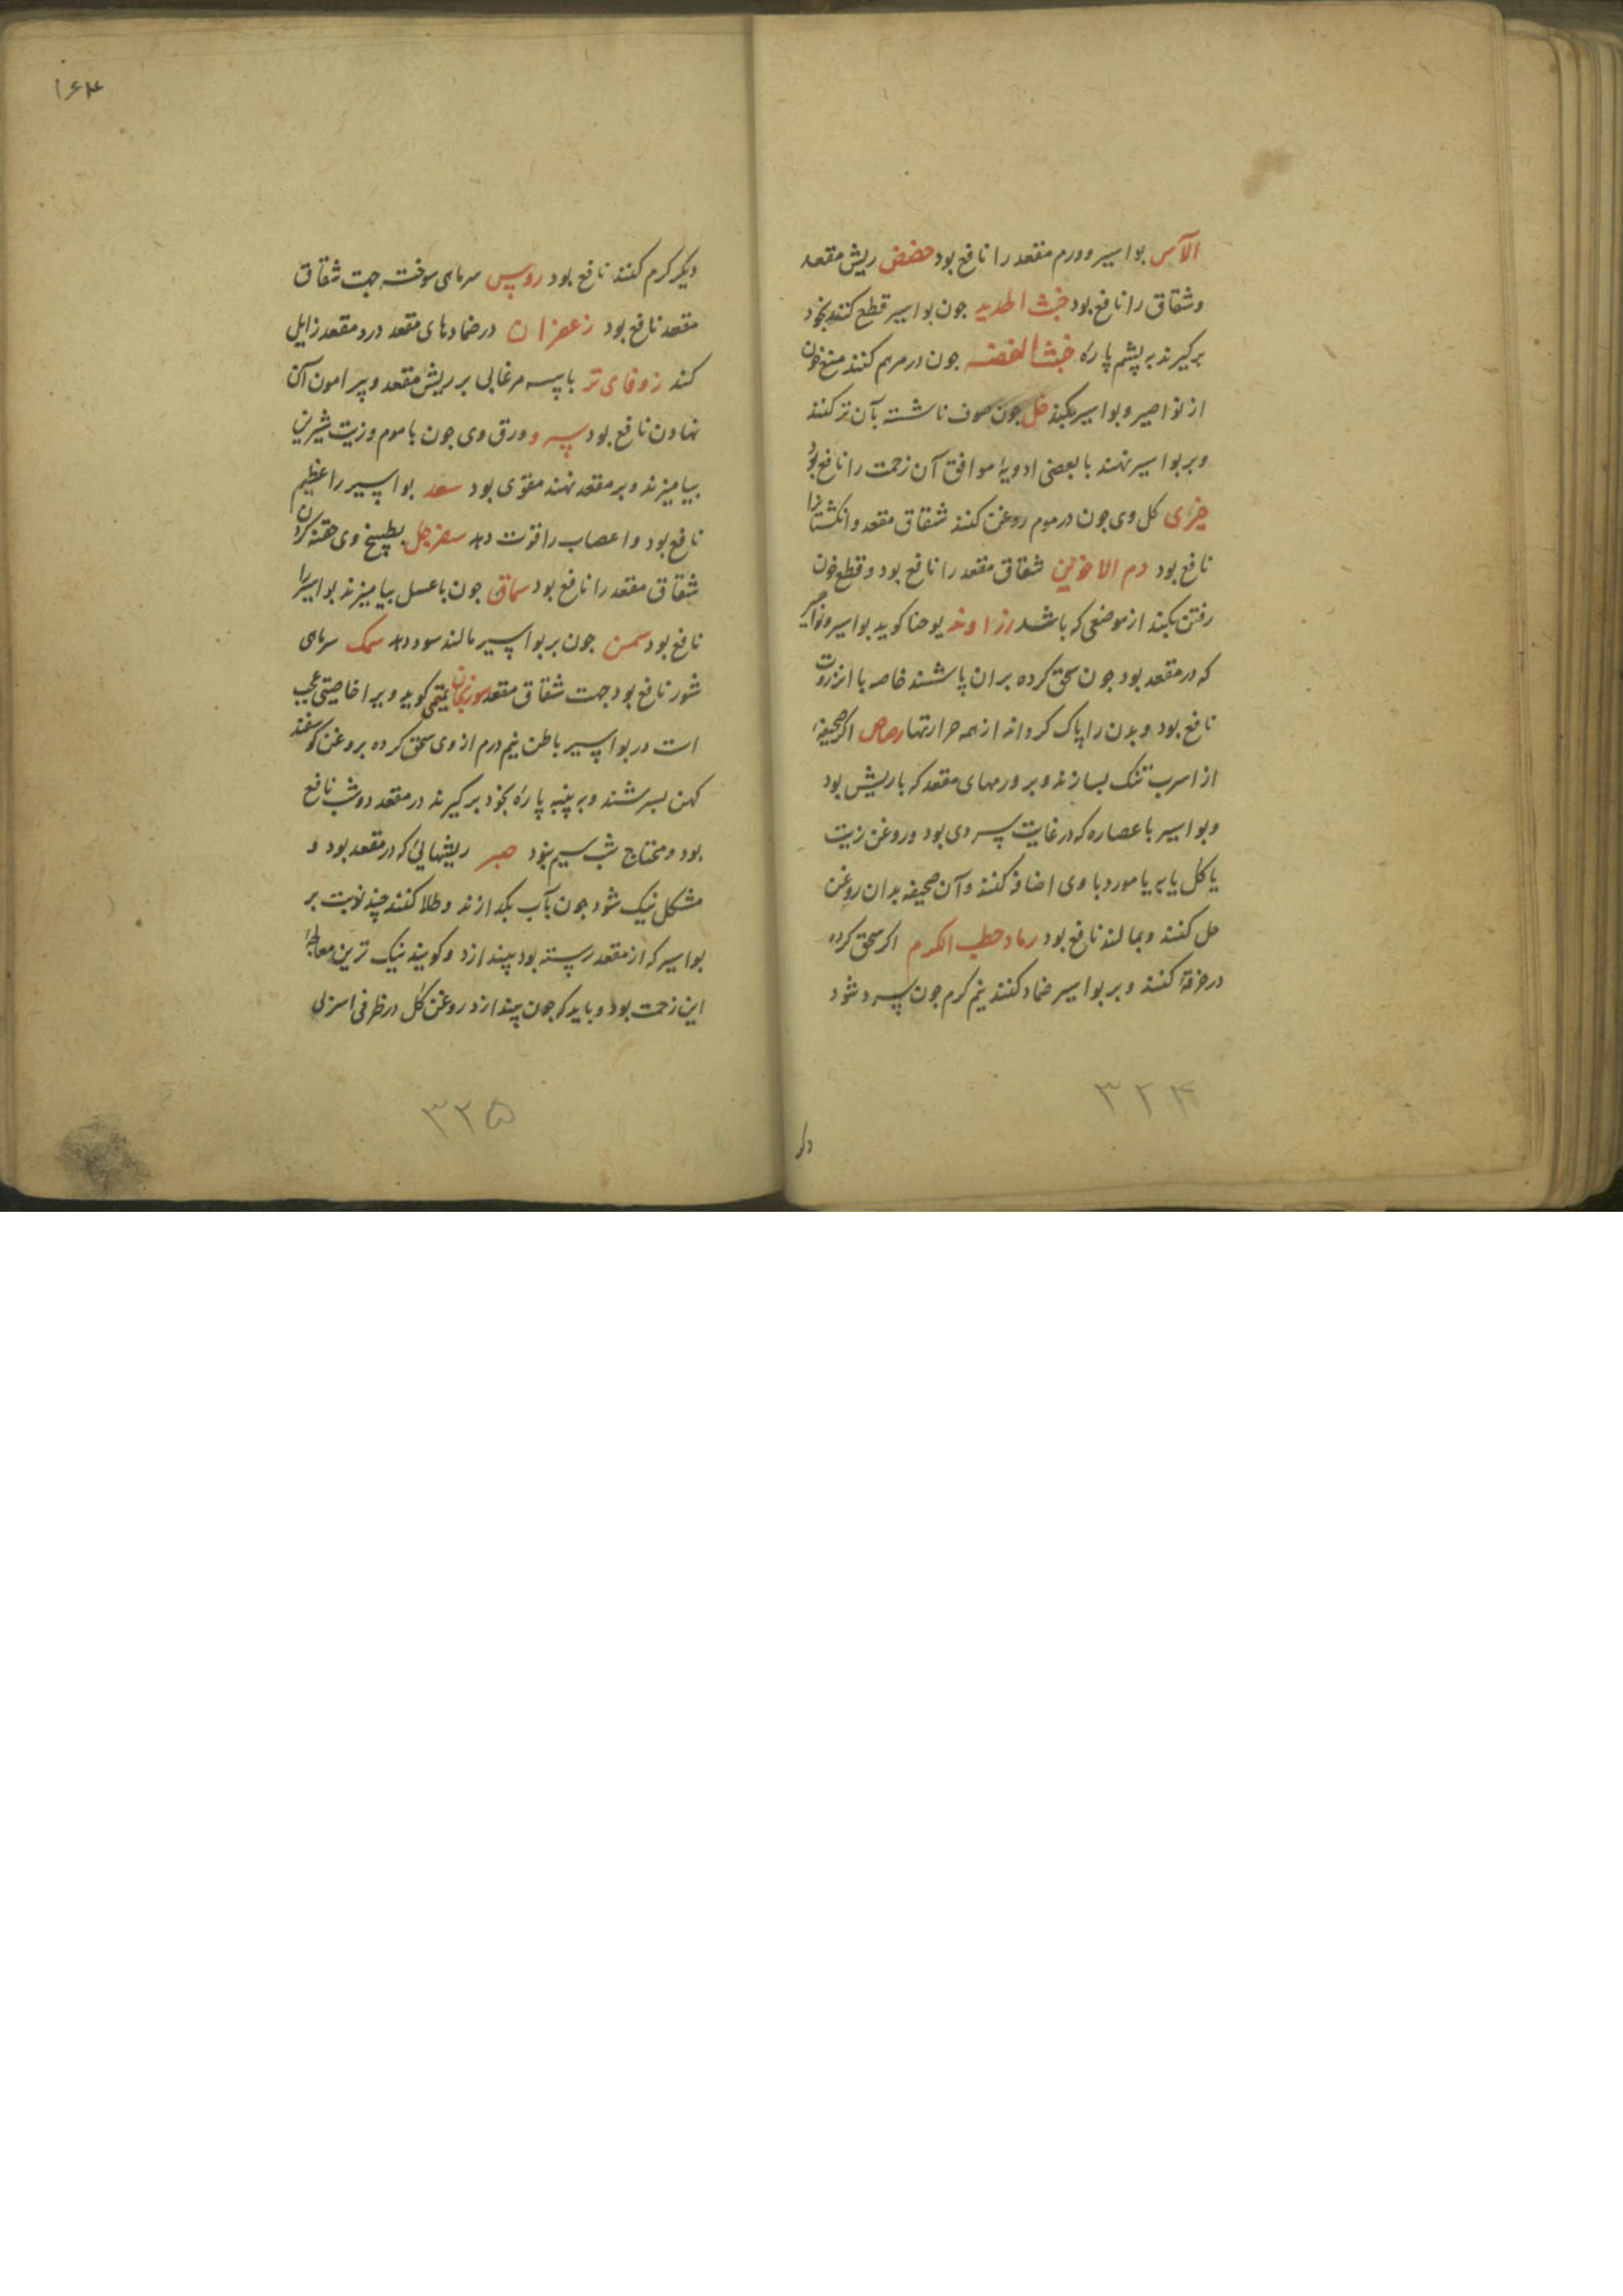 الآس بواسیر وورم مقعد را نافع بود حضض ریش مقعد
وشقاق را نافع بود خبث الحدید جون بواسیر قطع کنند بخود
برکیرند به پشم پاره خبث الفضه جون در مرهم کنند منع خون
از نواصیر وبواسیر بکند خل جون صوف ناشسته بآن تر کنند
وبر بواسیر نهند با بعضی ادویهٔ موافق آن زحمت را نافع بود
خیری کل وی جون در موم روغن کنند شقاق مقعد وانکشتانرا
نافع بود دم الاخوین شقاق مقعد را نافع بود وقطع خون
رفتن بکند از موضعی که باشد زراوند یوحنا کوید بواسیر ونواصیر
که در مقعد بود جون سحق کرده بران پاشند خاصه با انزروت
نافع بود وبدن را پاک کرداند از همه حرارتها رصاص اکر صحیفهٔ
از اسرب تنک بسازند وبر ورمهای مقعد که باریش بود
وبواسیر با عصاره که در غایت سردی بود وروغن زیت
یا کل یا به یا مورد با وی اضافه کنند وآن صحیفه بدان روغن
حل کنند وبمالند نافع بود رماد حطب الکرم اکر سحق کرده
در خرقهٔ کنند وبر بواسیر ضماد کنند نیم کرم جون سرد شود
۳۲۴
دیکر
۱۶۴
دیکر کرم کنند نافع بود روبیس سرماهی سوخته جهت شقاق
مقعد نافع بود زعفران در ضمادهای مقعد درد مقعد زایل
کند زوفای تر باپیه مرغابی بر ریش مقعد وپیرامون آن
نهادن نافع بود سرو ورق وی جون باموم وزیت شیرین
بیامیزند وبر مقعد نهند مقوی بود سعد بواسیر را عظیم
نافع بود واعصاب را قوت دهد سفرجل بطبیخ وی حقنه کردن
شقاق مقعد را نافع بود سماق جون باعسل بیامیزند بواسیر را
نافع بود سمن جون بر بواسیر مالند سود دهد سمک سرماهی
شور نافع بود جهت شقاق مقعد سورنجان تمیمی کوید ویرا خاصیتی عجیب
است در بواسیر باطن نیم درم از وی سحق کرده بروغن کوسفند
کهن بسرشند وبه پنبه پاره بخود برکیرند در مقعد دو شب نافع
بود ومحتاج شب سیم نبود صبر ریشهایی که در مقعد بود و
مشکل نیک شود جون بآب بکدازند وطلا کنند چند نوبت بر
بواسیر که از مقعد رسته بود بیندازد وکویند نیک ترین معالجهٔ
این زحمت بود وباید که جون بیندازد روغن کل در ظرفی اسربی
۳۲۵